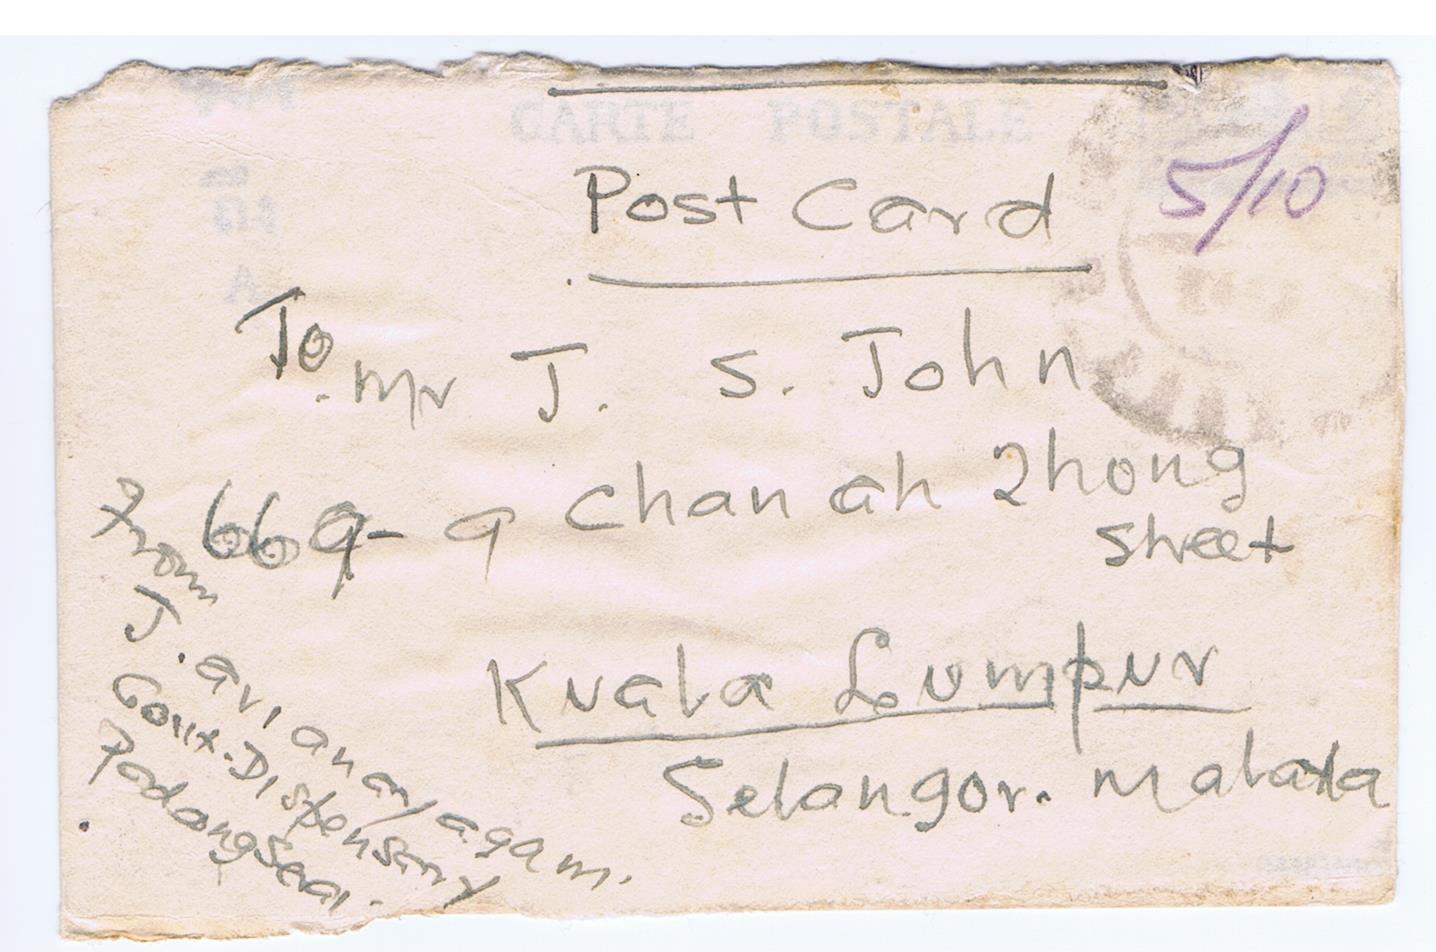 CARTE POSTALE
5/10
Post Card
To
mr J. S. John
669-9 Chan ah Zhong
Street
Kuala Lumpur
Selangor. Malaya
From
J. arianayagam.
Govt. Dispensary
Padangserai.